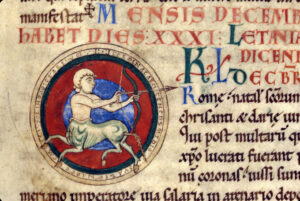 manifestat
MENSIS DECEMB
HABET DIES·XXXI· LETANIA
DICEN
KL DECBR
Rome· natal scorum
chrisanti & darie vir
Qui post multaru
xpo lucrati fuerant
nu coronas· iussi sunt
meriano imperatore via salaria in arenario depo